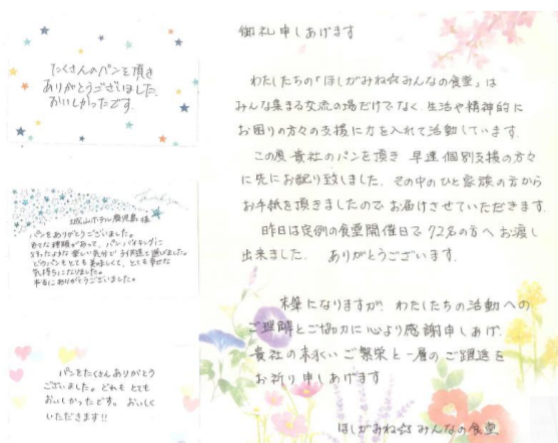 たくさんのパンを頂き
ありがとうございました。
おいしかったです。
城山ホテル鹿児島 様
パンをありがとうございました。
色々な種類があって、パンバイキングに
楽しい気分で子供達と選びました。
どのパンもとても美味しくて、とても幸せな
気持ちになりました。
本当にありがとうございました。
パンをたくさんありがとう
ございました。どれもとても
おいしかったです。おいしく
いただきます!!
御礼申しあげます
わたしたちの「ほしがみね☆みんなの食堂」は
みんな集まる交流の場だけでなく生活や精神的に
お困りの方々の支援に力を入れて活動しています.
この度貴社のパンを頂き 早速個別支援の方々
に先にお配り致しました. その中のひと家族の方から
お手紙を頂きましたのでお届けさせていただきます.
昨日は定例の食堂開催日で72名の方へお渡し
出来ました. ありがとうございます.
末筆になりますが、わたしたちの活動への
ご理解とご協力に心より感謝申しあげ.
貴社の末永いご繁栄と一層のご躍進を
お祈り申しあげます
ほしがみね☆みんなの食堂